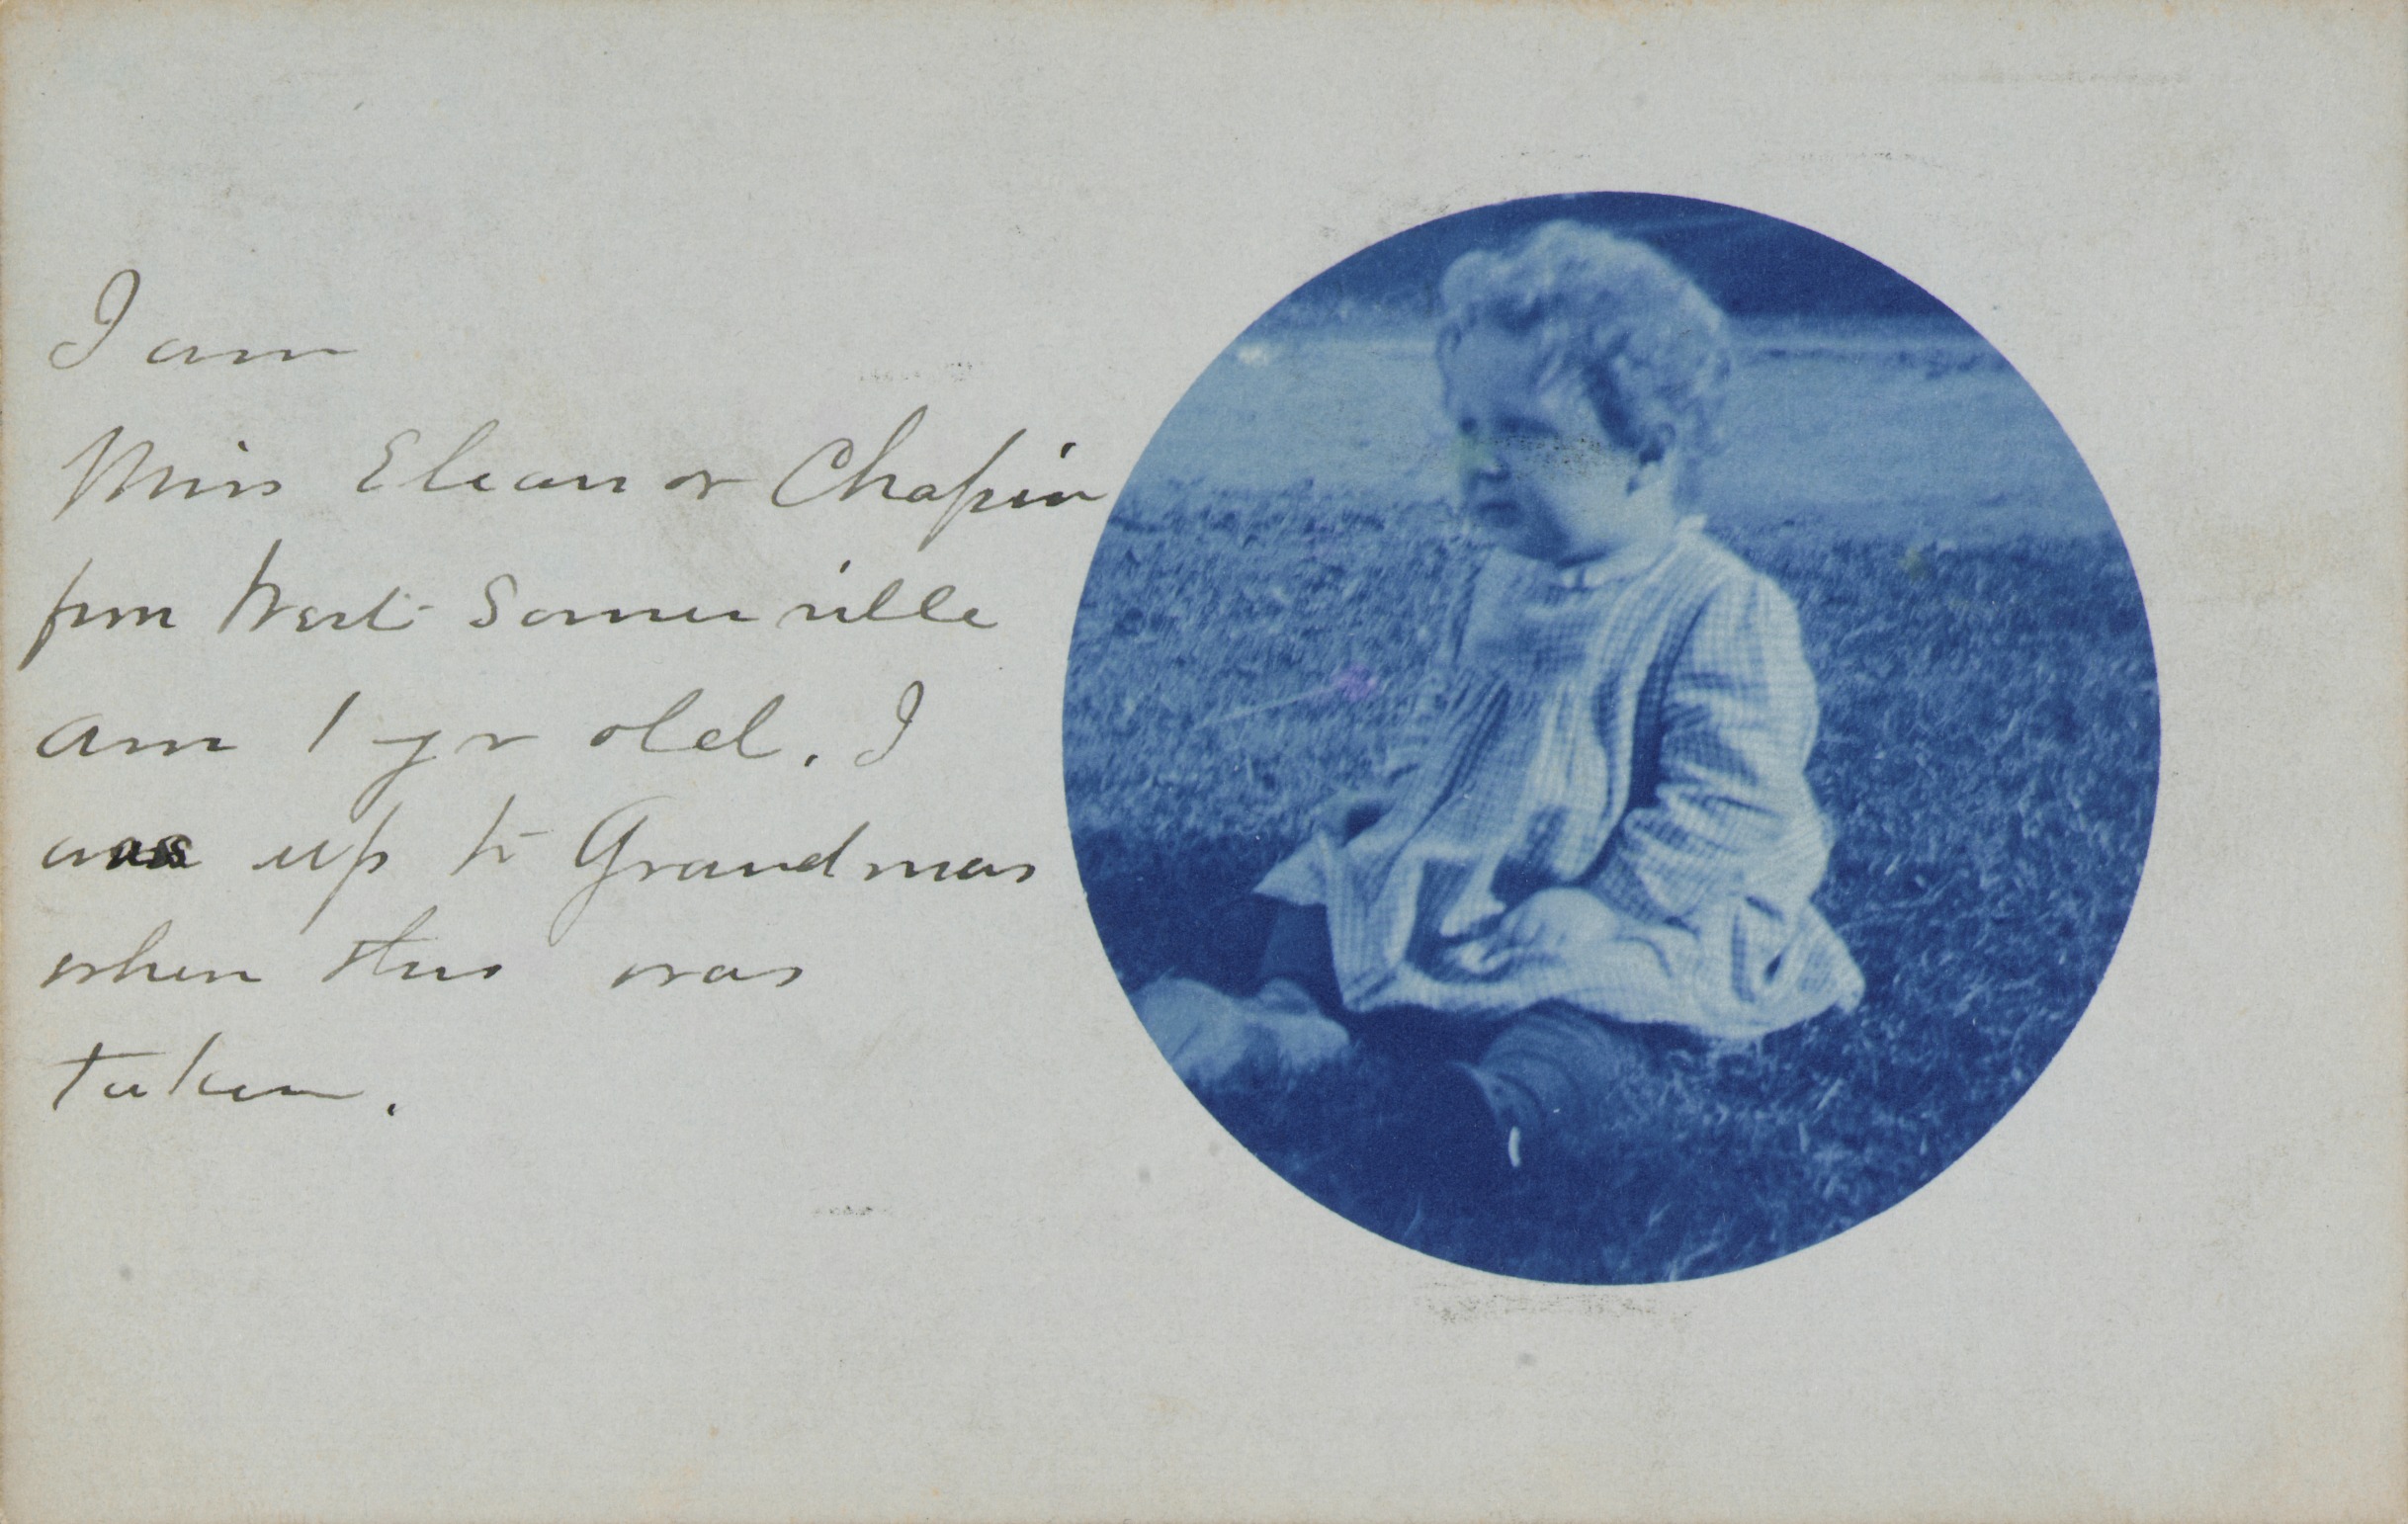 I am
Miss Eleanor Chapin
from West Somerville
am 1 yr old. I
was up to Grandmas
when this was
taken.